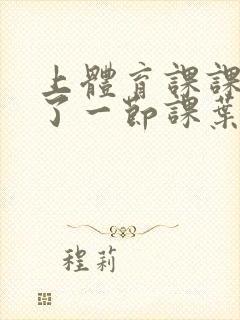 上體育課課
了一節課葉
程莉